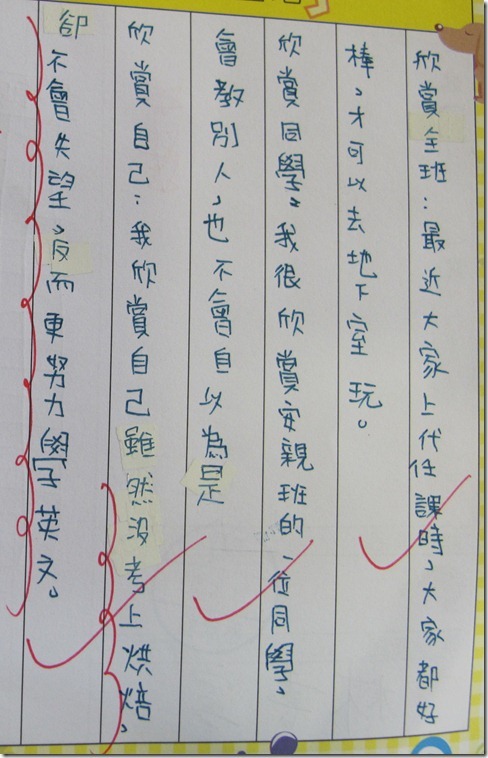 欣賞全班：最近大家上代任課時，大家都好
棒，才可以去地下室玩。
欣賞同學。我很欣賞安親班的一位同學，
會教別人，也不會自以為是
欣賞自己：我欣賞自己雖然沒考上烘焙，
卻不會失望，反而更努力學英文。